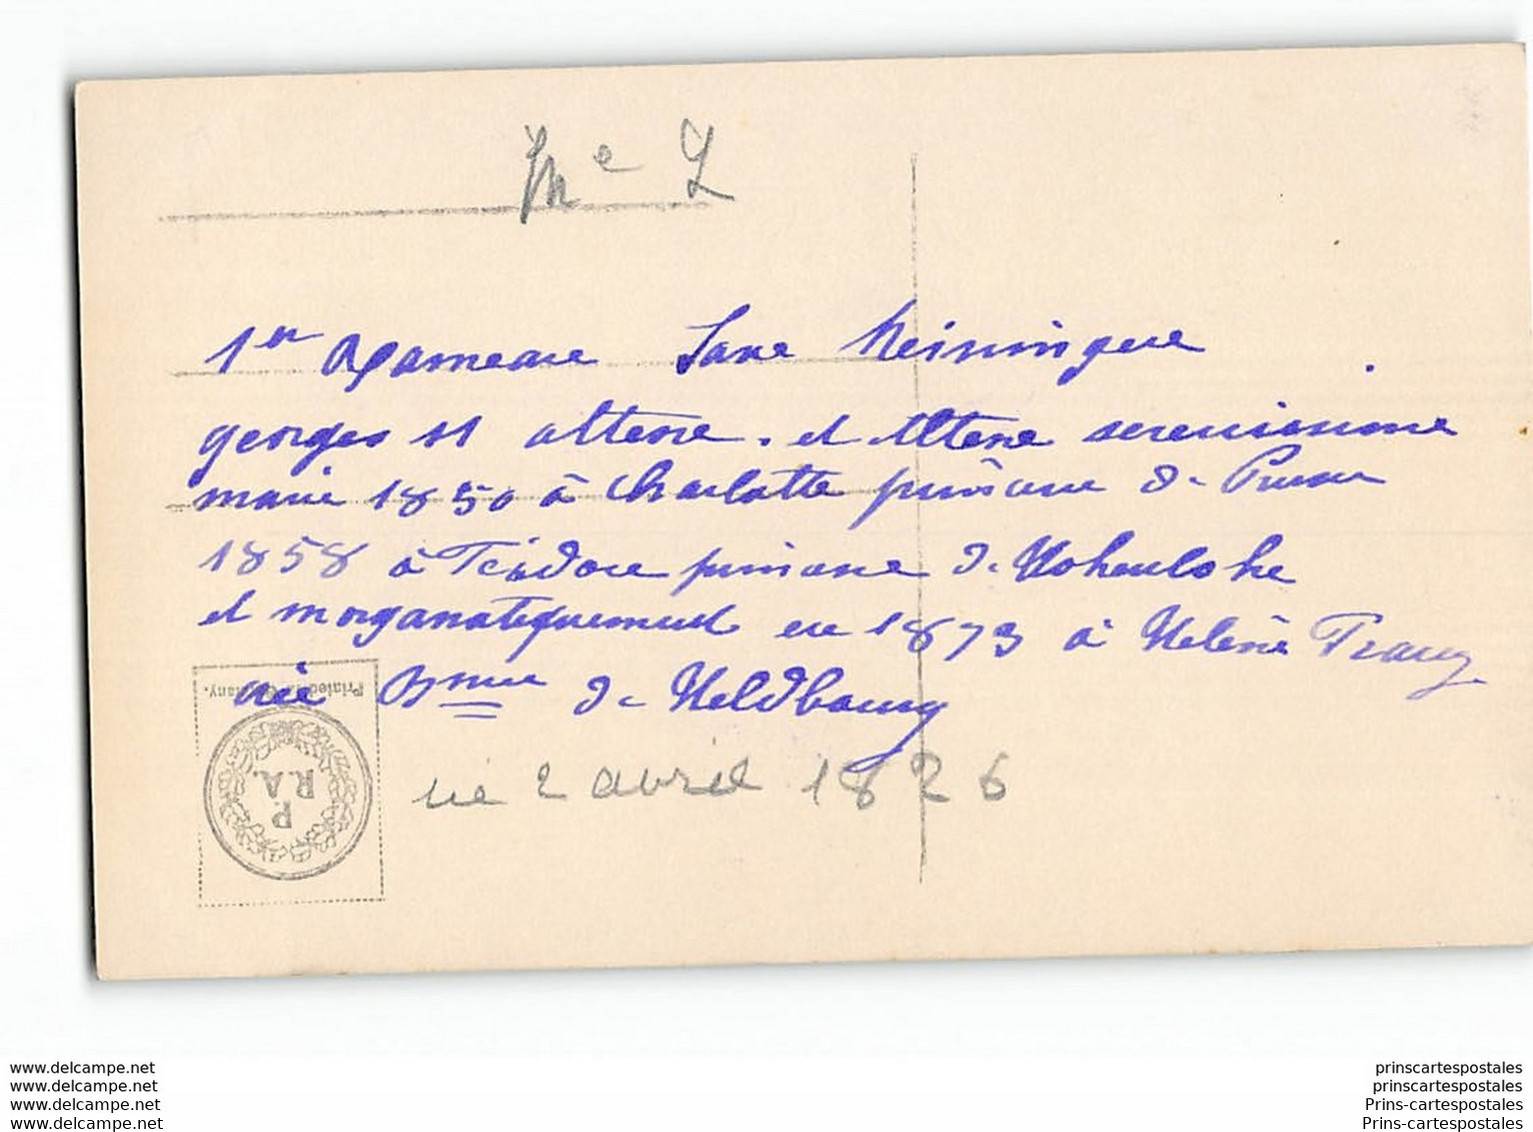 Me L
1er Rameau Saxe Meiningue
georges II altesse . et Altesse serenissime
marié 1850 à Charlotte princesse de Prusse
1858 à Téodore princesse de Hohenlohe
et morganatiquement en 1873 à Helène Franz
née Bnne de Heldbourg
né 2 avril 1826
Printed in Germany.
P.
R.A.
www.delcampe.net
www.delcampe.net
www.delcampe.net
www.delcampe.net
prinscartespostales
prinscartespostales
Prins-cartespostales
Prins-cartespostales